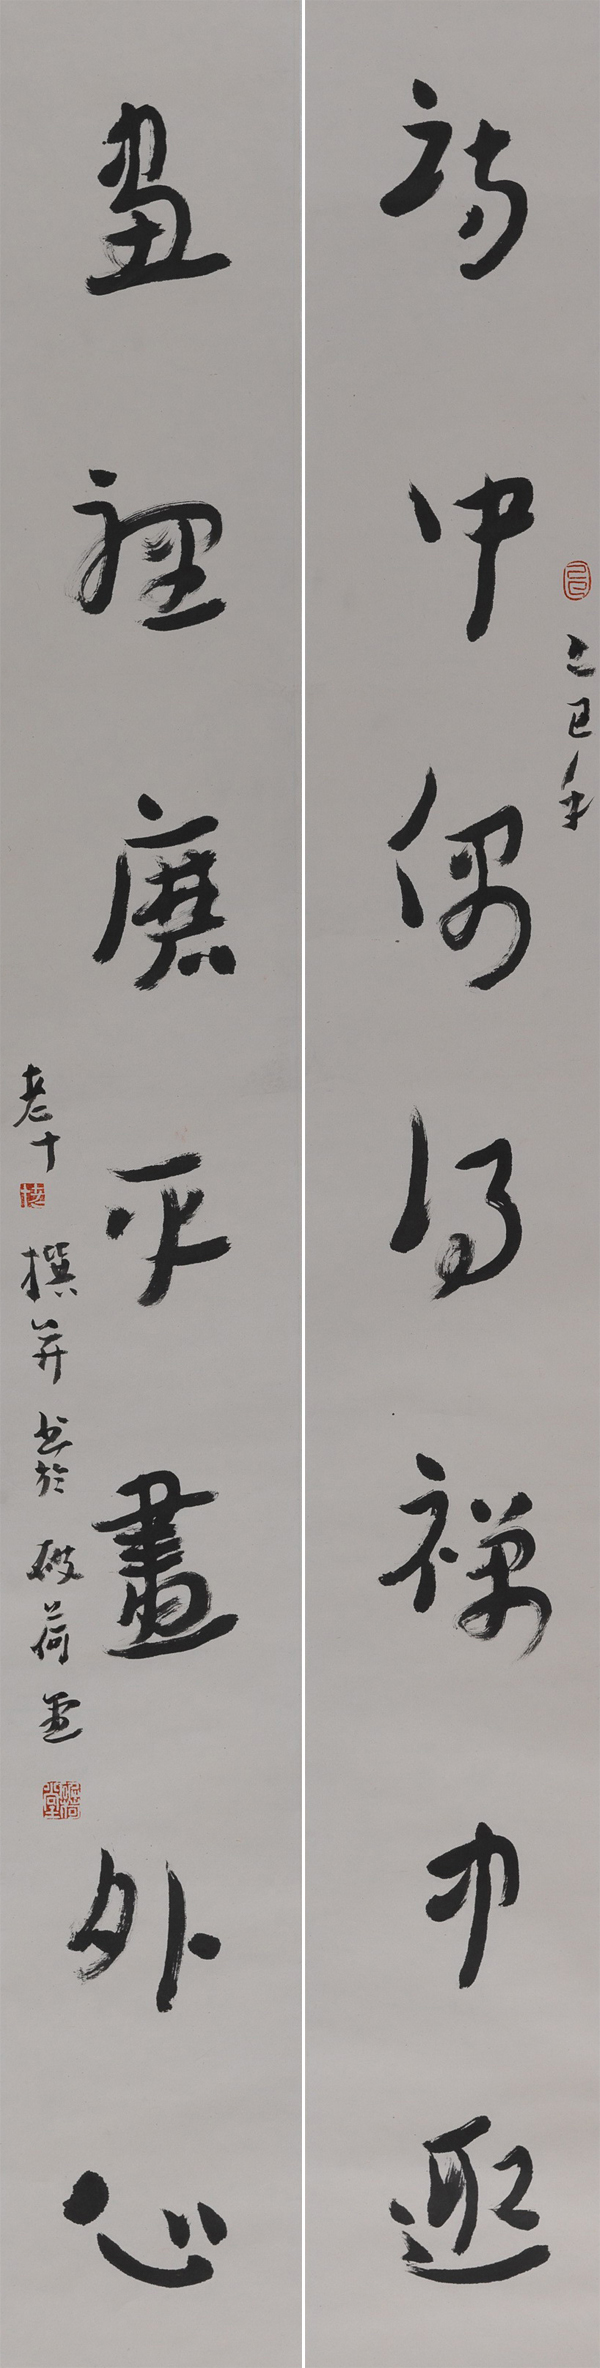 詩中偶得禪中趣
乙巳年
畫裡平畫外心
撰并书於破荷堂
老十
破荷堂